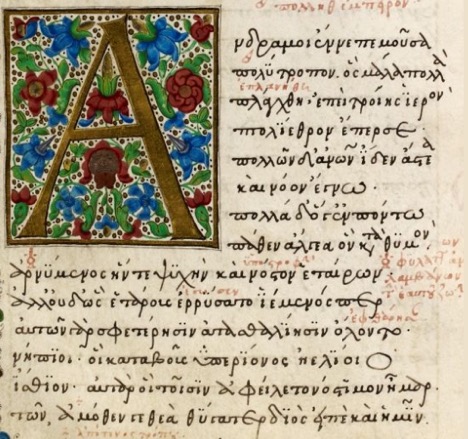 Ἄνδρα μοι ἔννεπε μοῦσα
πολύτροπον. ὃς μάλα πολλὰ
ἐπλανήθη
πλάγχθη· ἐπεὶ τροίης ἱερὸν
πτολίεθρον ἔπερσε·
πολλῶν δ' ἀνων ἴδεν ἄστεα
καὶ νόον ἔγνω·
πολλὰ δ' ὅγ' ἐν πόντω
πάθεν ἄλγεα ὃν κατὰ θυμὸν
ἀρνύμενος ἥν τε ψυχὴν καὶ νόστον ἑταίρων·
ἀλλ' οὐδ' ὣς ἑτάρους ἐρρύσατο ἱέμενός περ
αὐτῶν γὰρ σφετέρησιν ἀτασθαλίησιν ὄλοντο·
νήπιοι· οἳ κατὰ βοῦς ὑπερίονος ἠελίοιο
ἤσθιον· αὐτὰρ ὁ τοῖσιν ἀφείλετο νόστιμον ἦμαρ·
τῶν ἁμόθεν γε θεὰ θύγατερ διὸς εἰπὲ καὶ ἡμῖν·